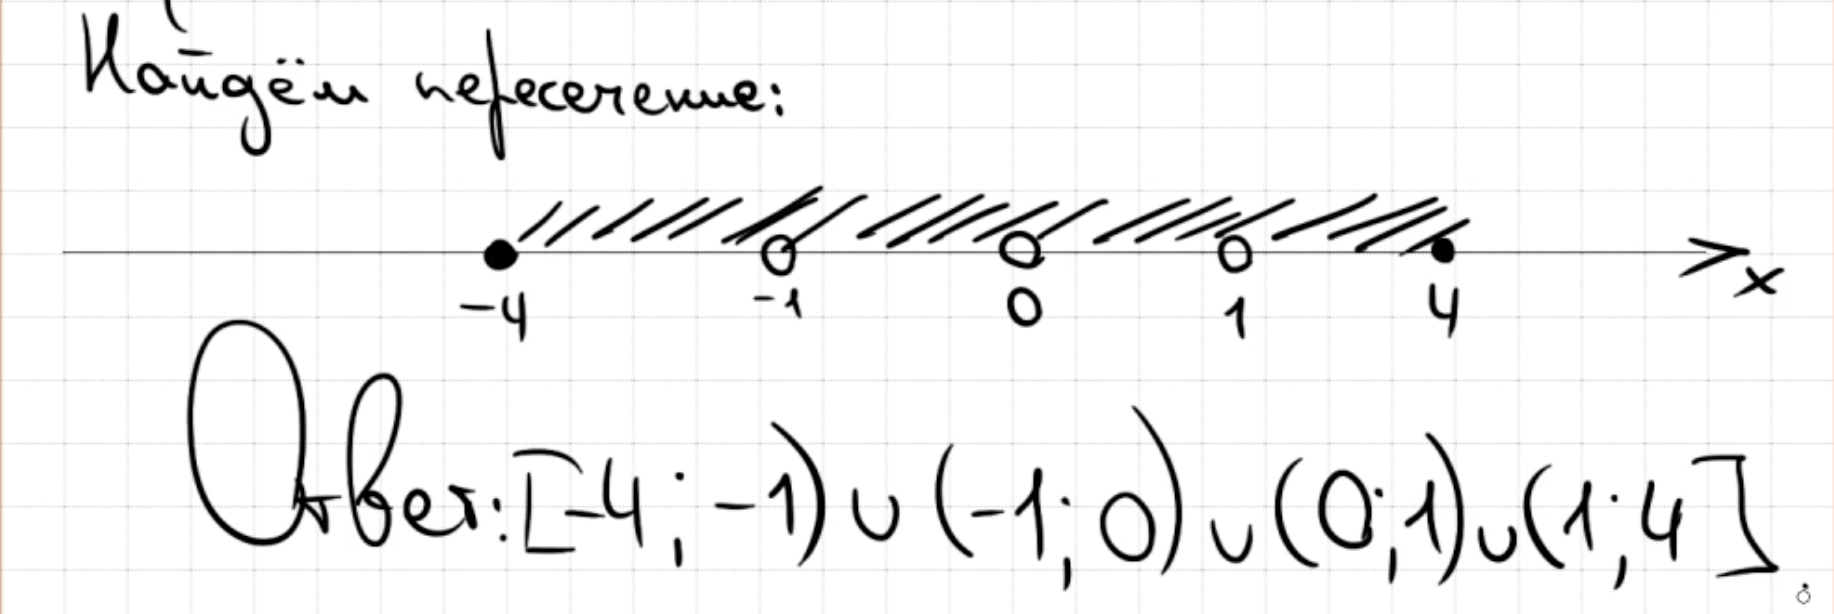 Найдём пересечение:
-4 -1 0 1 4 x
Ответ: [-4; -1) ∪ (-1; 0) ∪ (0; 1) ∪ (1; 4].